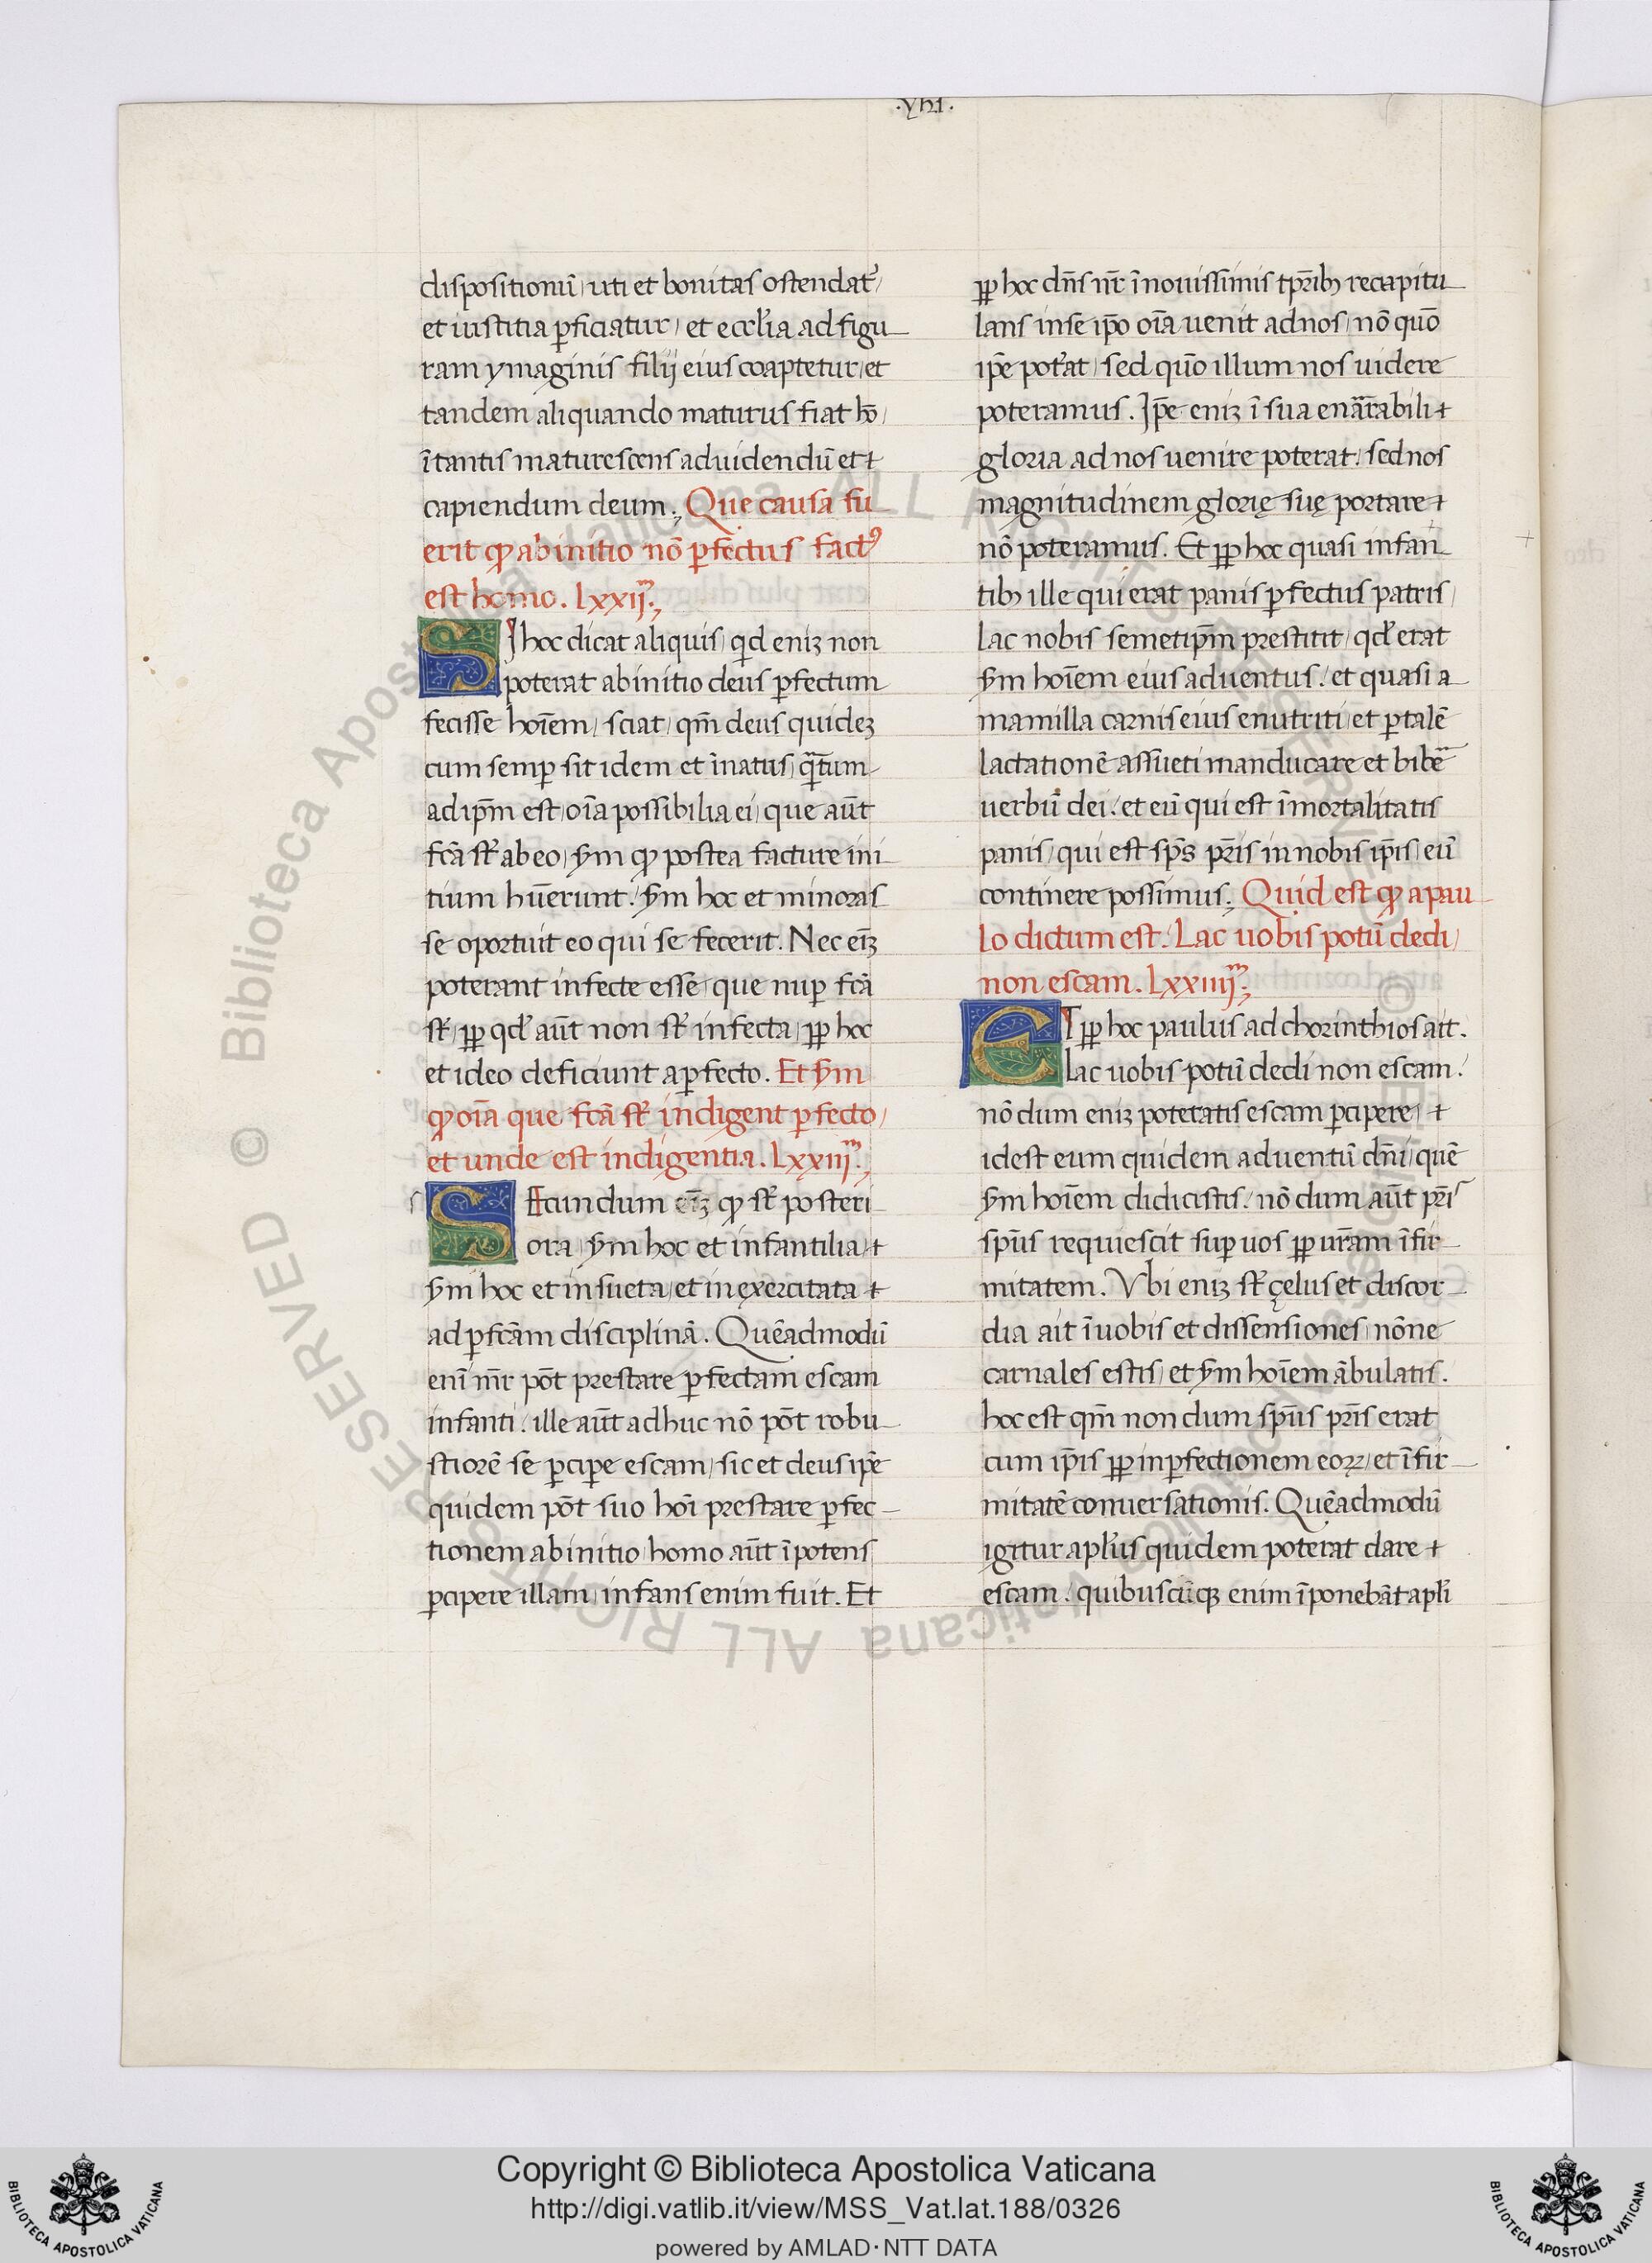 .yh1.
dispositionū, uti et bonitas ostendat᷑,
et iustitia ꝑficiatur, et eccl̃ia ad figu
ram ymaginis filij eius coaptetur, et
tandem aliquando maturus fiat hō,
ītantis maturescens ad uidendū et
capiendum deum; Que causa fu
erit ꝙ ab initio nō ꝑfectus factꝰ
est homo. lxxij.ᵐ;
SI hoc dicat aliquis, qͥd eniʒ non
poterat ab initio deus ꝑfectum
fecisse hoīem, sciat, qm̄ deus quideʒ
cum semꝑ sit idem et īnatus, qᵃ̄tum
ad ip̄m est, oīa possibilia ei, que aūt
fcā st̄ ab eo, ẜm ꝙ postea facture ini
tium hūerunt, ẜm hoc et minoras
se oportuit eo qui se fecerit. Nec eīʒ
poterant infecte esse, que nuꝑ fcā
st̄, ꝓp qd̄ aūt non st̄ infecta, ꝓp hoc
et ideo deficiunt a ꝑfecto. Et ẜm
ꝙ oīa que fcā st̄ indigent ꝑfecto,
et unde est indigentia. lxxiij.ᵐ;
s SEcundum eīʒ ꝙ st̄ posteri
ora, ẜm hoc et infantilia,
ẜm hoc et insueta, et inęxercitata
ad ꝑfcām disciplinā. Quēadmodū
enī mr̄ pōt prestare ꝑfectam escam
infanti, ille aūt adhuc nō pōt robu
stiorē se ꝑcipe escam, sic et deus ip̄e
quidem pōt suo hoī prestare ꝑfec
tionem ab initio, homo aūt īpotens
ꝑcipere illam, infans enim fuit. Et
ꝓp hoc dn̄s nr̄ ī nouissimis tp̄rib; recapitu
lans in se ip̄o oīa uenit ad nos, nō quō
ip̄e pot᷑at, sed quō illum nos uidere
poteramus. Ip̄e eniʒ ī sua enar̄abili
gloria ad nos uenire poterat, sed nos
magnitudinem glorię suę portare
nō poteramus. Et ꝓp hoc quasi infan
tib; ille qui erat panis ꝑfectus patris,
lac nobis semetip̄m prestitit, qd̄ erat
ẜm hoīem eius aduentus, et quasi a
mamilla carnis eius enutriti, et ꝑ talē
lactationē assueti manducare et bibē
uerbū dei, et eū qui est īmortalitatis
panis, qui est sp̄s pr̄is in nobis ip̄is, eū
continere possimus; Quid est ꝙ a pau
lo dictum est. Lac uobis potū dedi,
non escam. lxxiiij.ᵐ;
ET ꝓp hoc paulus ad chorinthios ait.
Lac uobis potū dedi non escam.
nō dum eniʒ poteratis escam ꝑcipere,
idest eum quidem aduentū dn̄i, quē
ẜm hoīem didicistis, nō dum aūt pr̄is
sp̄us requiescit suꝑ uos ꝓp ur̄am īfir
mitatem. Vbi eniʒ st̄ çelus et discor
dia ait ī uobis et dissensiones, nōne
carnales estis, et ẜm hoīem ābulatis.
hoc est qm̄ non dum sp̄us pr̄is erat
cum ip̄is ꝓp inꝑfectionem eoꝝ, et īfir
mitatē conuersationis. Quēadmodū
igitur apl̄us quidem poterat dare
escam, quibuscūqꝫ enim īponebāt apl̄i
Copyright © Biblioteca Apostolica Vaticana
http://digi.vatlib.it/view/MSS_Vat.lat.188/0326
powered by AMLAD·NTT DATA
BIBLIOTECA APOSTOLICA VATICANA
BIBLIOTECA APOSTOLICA VATICANA
© Biblioteca Apostolica Vaticana ALL RIGHTS RESERVED
© Biblioteca Apostolica Vaticana ALL RIGHTS RESERVED